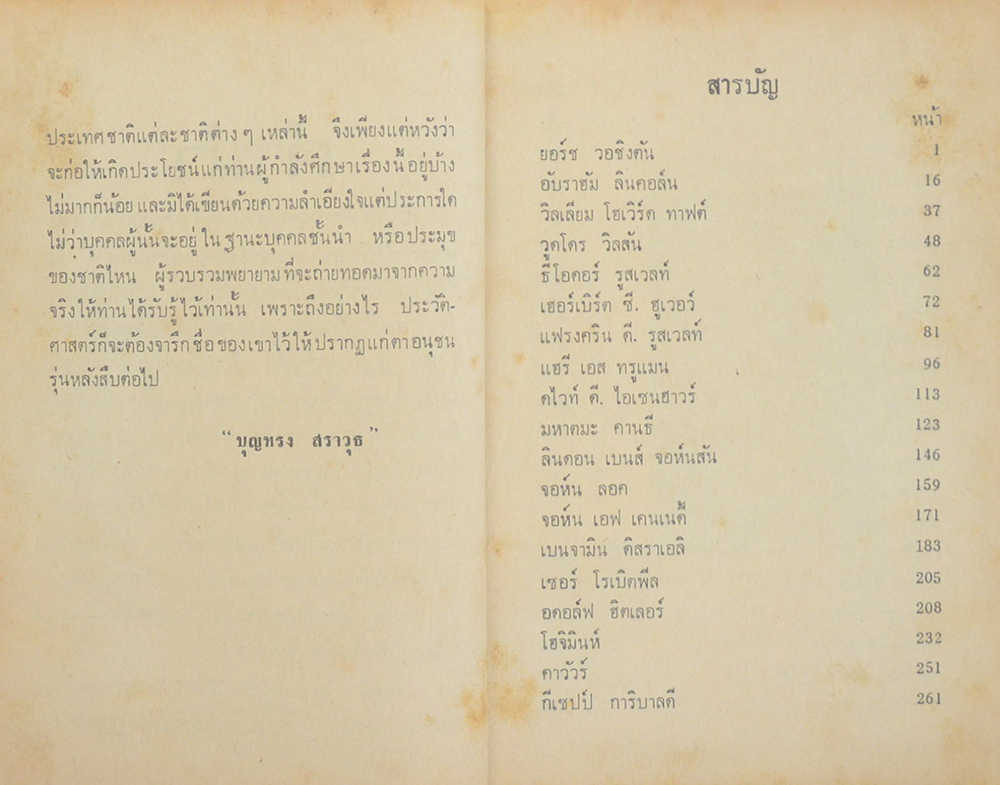 ประเทศชาติแต่ละชาติต่าง ๆ เหล่านี้ จึงเพียงแต่หวังว่า
จะก่อให้เกิดประโยชน์แก่ท่านผู้กำลังศึกษาเรื่องนี้อยู่บ้าง
ไม่มากก็น้อย และมิได้เขียนด้วยความลำเอียงใจแต่ประการใด
ไม่ว่าบุคคลผู้นั้นจะอยู่ ใน ฐานะบุคคลชั้นนำ หรือประมุข
ของชาติไหน ผู้รวบรวมพยายามที่จะถ่ายทอดมาจากความ
จริงให้ท่านได้รับรู้ไว้เท่านั้น เพราะถึงอย่างไร ประวัติ-
ศาสตร์ก็จะต้องจารึกชื่อของเขาไว้ให้ปรากฏแก่ตาอนุชน
รุ่นหลังสืบต่อไป
“บุญทรง สราวุธ”
สารบัญ
หน้า
ยอร์ช วอชิงตัน 1
อับราฮัม ลินคอล์น 16
วิลเลียม โฮเวิร์ด ทาฟต์ 37
วูดโดร วิลสัน 48
ธีโอดอร์ รูสเวลท์ 62
เฮอร์เบิร์ต ซี. ฮูเวอว์ 72
แฟรงคริน ดี. รูสเวลท์ 81
แฮรี เอส ทรูแมน 96
ดไวท์ ดี. ไอเซนฮาวร์ 113
มหาตมะ คานธี 123
ลินดอน เบนส์ จอห์นสัน 146
จอห์น ลอค 159
จอห์น เอฟ เคนเนดี้ 171
เบนจามิน ดิสราเอลิ 183
เซอร์ โรเบิตพีล 205
อดอล์ฟ ฮิตเลอร์ 208
โฮจิมินห์ 232
คาวัวร์ 251
กีเซปป์ การิบาลดี 261